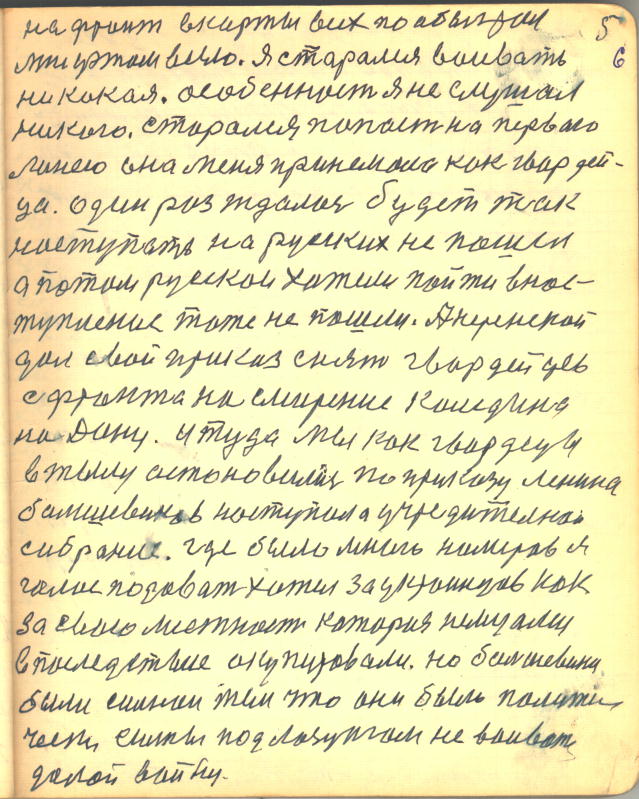 на фронт в карты всих пообыграл 5
мни уртом вело. я старался воивать 6
никокая. особенност я не слушал
никого. старался попаст на первою
линею она меня принемола как гвордей-
ца. один роз ждалоя будет так
ноступать на руских не пошли
а потом руской хотели пойти внос-
тупление тоже не пошли. А керенской
дал свой приказ снят гвордейцев
с фронта на смирение Каледина
на Дону. и туда мы как гвордецы
в тылу остоновились по приказу Ленина
болшевиков наступила учредителная
сабрание. где было много номеров я
голос подоват хотел за украинцов как
за свою местност которая немцами
в последствие окупировали. но болшевики
были силной тем что они быль полити
чески силны под лозунгом не воиват
долой войну.